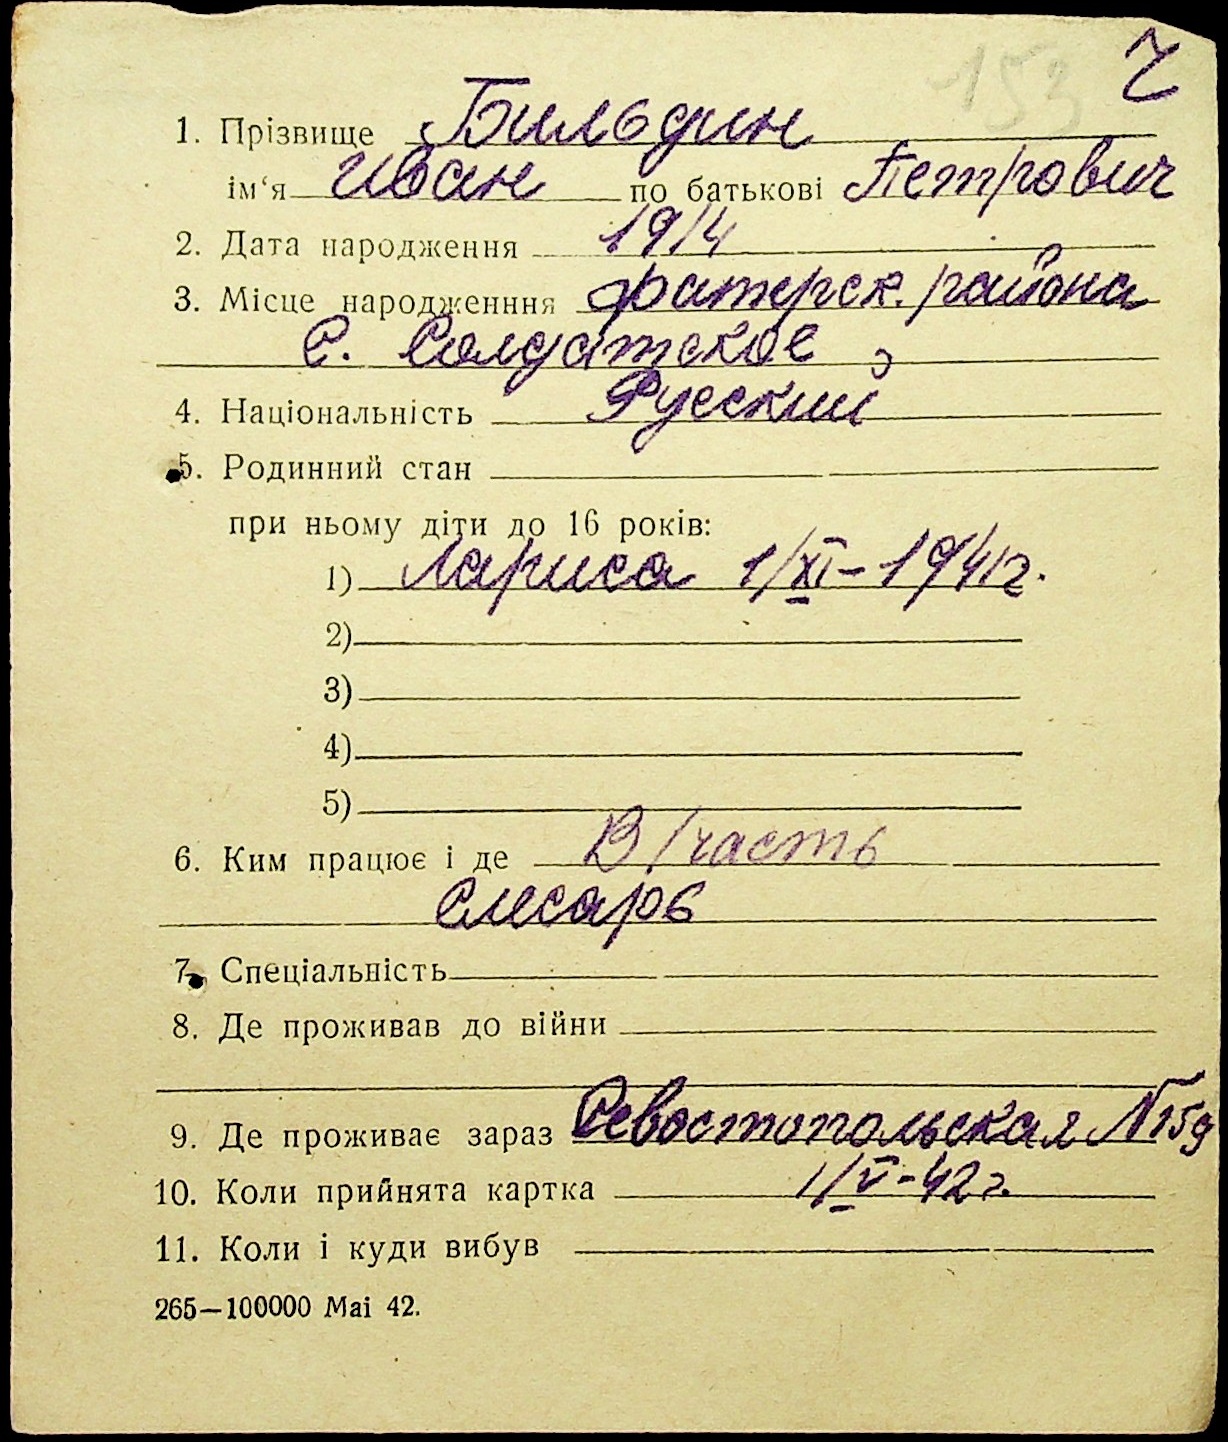 153 Ч
1. Прізвище Бильдин
ім‘я Иван по батькові Петрович
2. Дата народження 1914
3. Місце народженння фатерск. района
С. Солдатское
4. Національність Русский
5. Родинний стан
при ньому діти до 16 років:
1) Лариса 1/XI-1941г.
2)
3)
4)
5)
6. Ким працює і де В/часть
Слесарь
7. Спеціальність
8. Де проживав до війни
9. Де проживає зараз Севостопольская №
10. Коли прийнята картка 1/V-42г.
11. Коли і куди вибув
265—100000 Маі 42.